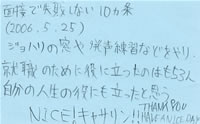 面接で失敗しない10カ条
(2006.5.25)
ジョハリの窓や発声練習などをやり
就職のために役に立ったのはもちろん
自分の人生の役にも立ったと思う
NICE!キャサリン!!
THANK YOU
HAVE A NICE DAY